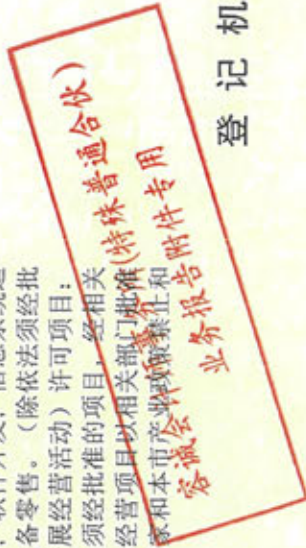 、软件开发；信息系统运
备零售。（除依法须经批
展经营活动）许可项目：
须经批准的项目，经相关
经营项目以相关部门批准
家和本市产业政策禁止和
容诚会计师事务所(特殊普通合伙)
业务报告附件专用
登记机